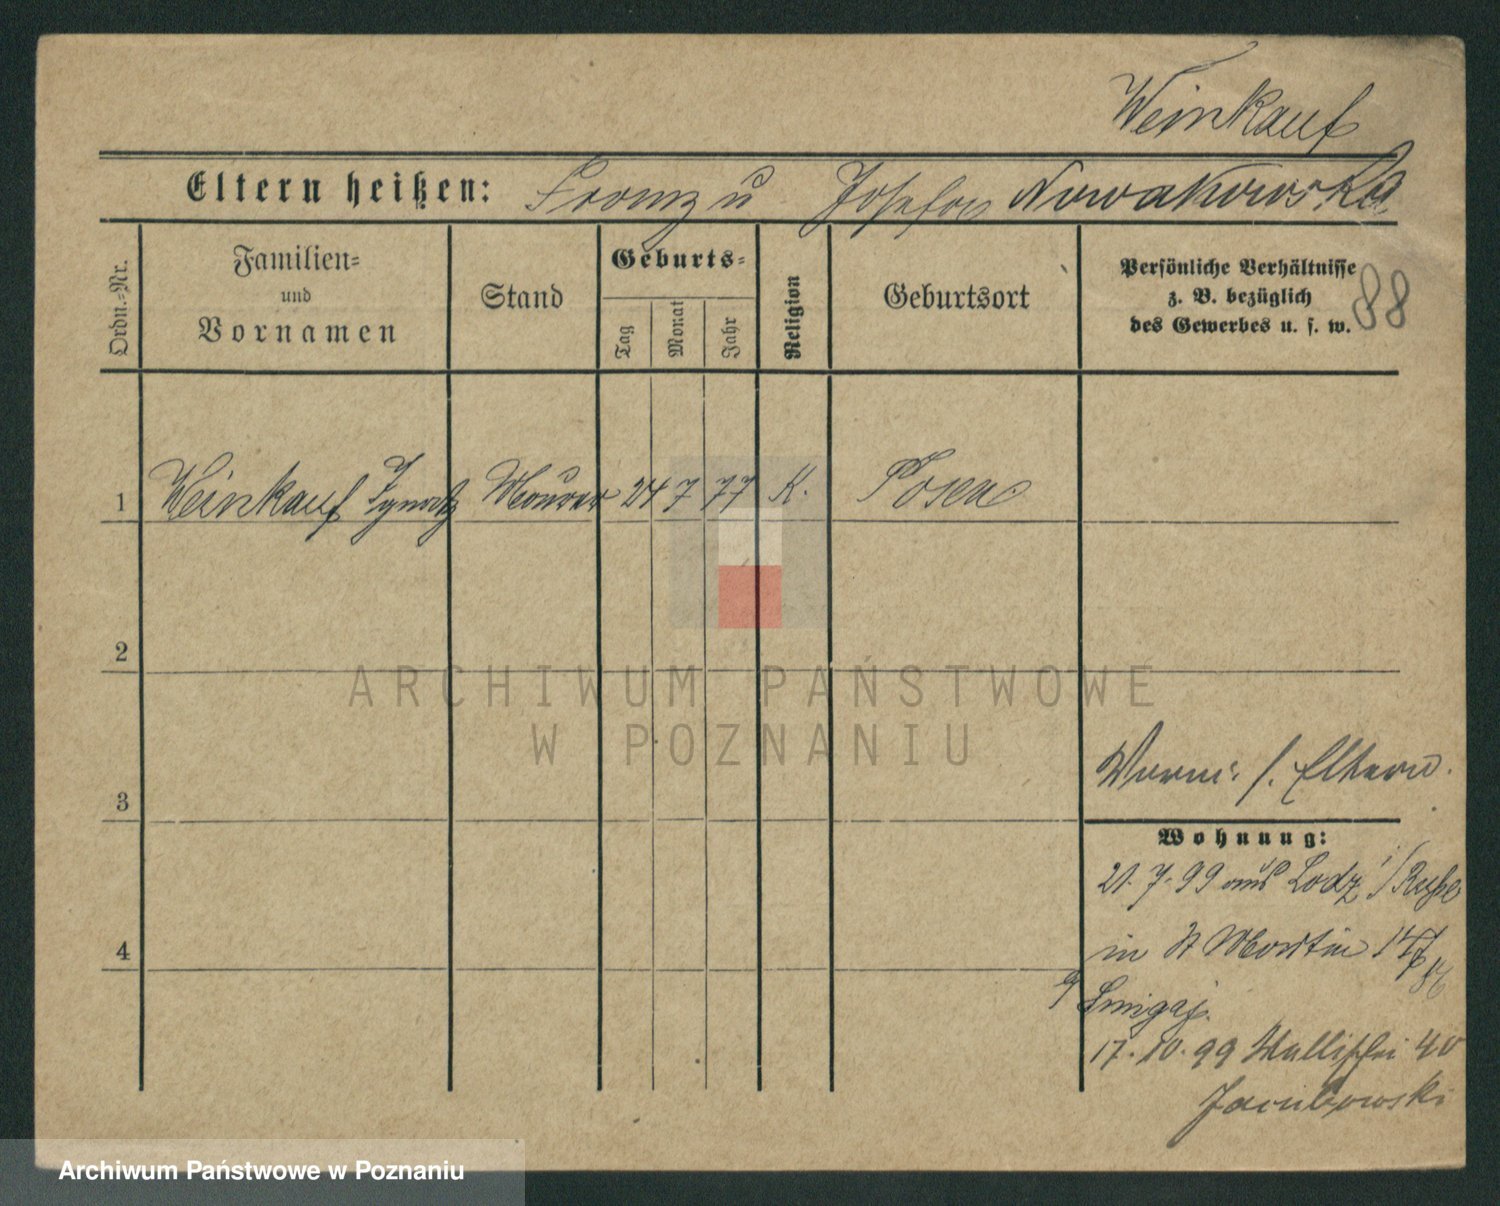 Weinkauf
Eltern heißen: Franz u Josefa Nowakowska
Ordn.-Nr.
Familien-
und
Vornamen
Stand
Geburts-
Tag
Monat
Jahr
Religion
Geburtsort
Persönliche Verhältnisse
z. B. bezüglich
des Gewerbes u. s. w.
88
1 Weinkauf Ignatz Maurer 24 7 77 K. Posen
2
ARCHIWUM PAŃSTWOWE
W POZNANIU
3
s. Eltern.
Wohnung:
21. 7. 99 aus Lodz i/
in St Martin
4
Smigaj.
17. 10. 99 Wallischei 40
Jakubowski
Archiwum Państwowe w Poznaniu